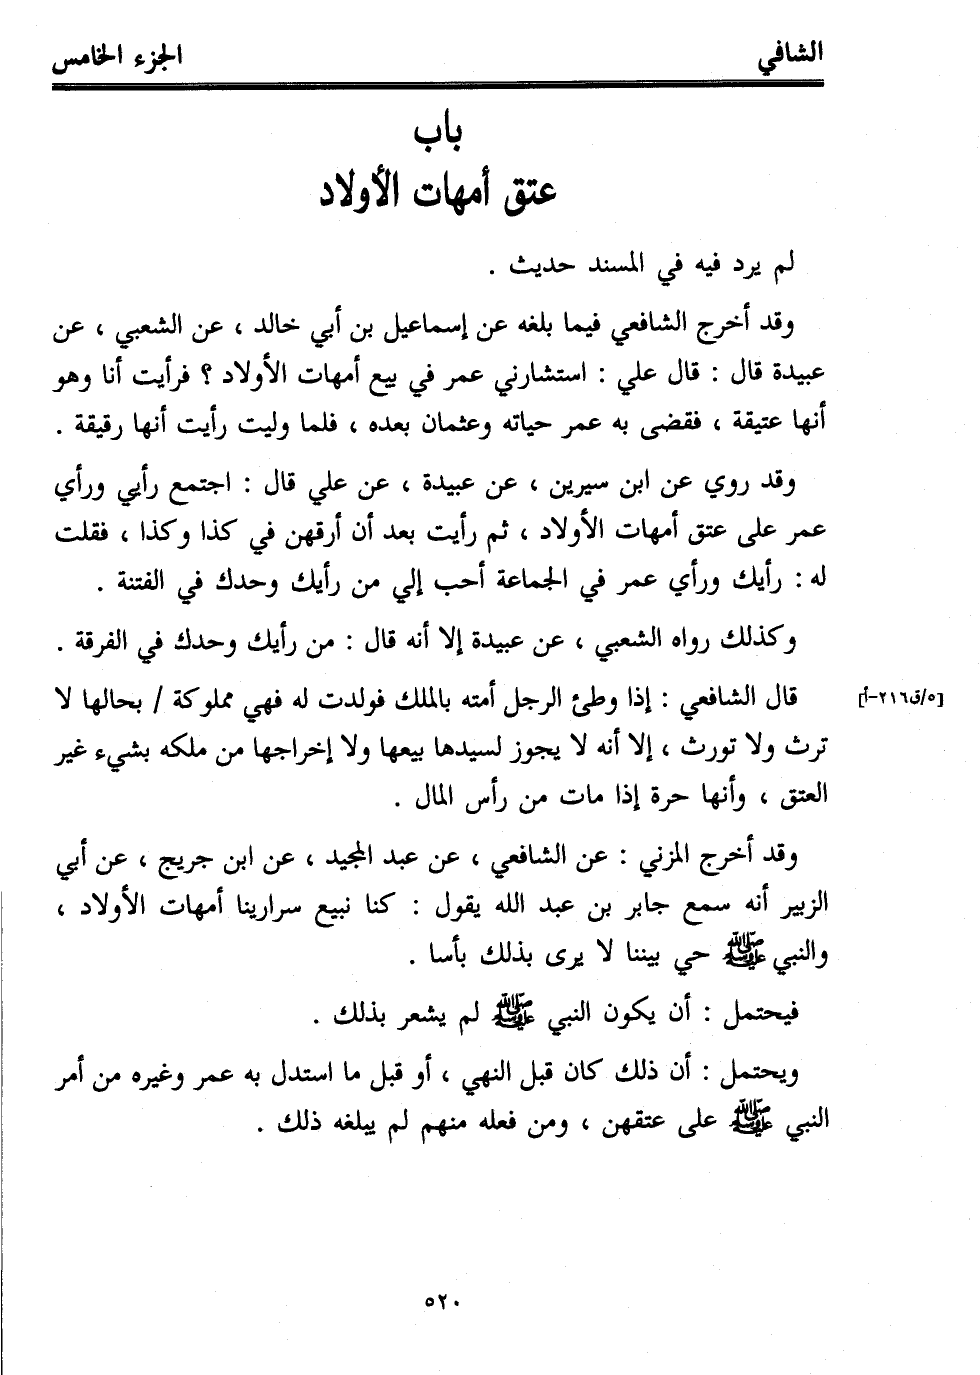 الشافي الجزء الخامس
باب
عتق أمهات الأولاد
لم يرد فيه في المسند حديث .
وقد أخرج الشافعي فيما بلغه عن إسماعيل بن أبي خالد ، عن الشعبي ، عن
عبيدة قال : قال علي : استشارني عمر في بيع أمهات الأولاد ؟ فرأيت أنا وهو
أنها عتيقة ، فقضى به عمر حياته وعثمان بعده ، فلما وليت رأيت أنها رقيقة .
وقد روي عن ابن سيرين ، عن عبيدة ، عن علي قال : اجتمع رأيي ورأي
عمر على عتق أمهات الأولاد ، ثم رأيت بعد أن أرقهن في كذا وكذا ، فقلت
له : رأيك ورأي عمر في الجماعة أحب إلي من رأيك وحدك في الفتنة .
وكذلك رواه الشعبي ، عن عبيدة إلا أنه قال : من رأيك وحدك في الفرقة .
قال الشافعي : إذا وطئ الرجل أمته بالملك فولدت له فهي مملوكة / بحالها لا [٥/ق٢١٦-أ]
ترث ولا تورث ، إلا أنه لا يجوز لسيدها بيعها ولا إخراجها من ملكه بشيء غير
العتق ، وأنها حرة إذا مات من رأس المال .
وقد أخرج المزني : عن الشافعي ، عن عبد المجيد ، عن ابن جريج ، عن أبي
الزبير أنه سمع جابر بن عبد الله يقول : كنا نبيع سرارينا أمهات الأولاد ،
والنبي ﷺ حي بيننا لا يرى بذلك بأسا .
فيحتمل : أن يكون النبي ﷺ لم يشعر بذلك .
ويحتمل : أن ذلك كان قبل النهي ، أو قبل ما استدل به عمر وغيره من أمر
النبي ﷺ على عتقهن ، ومن فعله منهم لم يبلغه ذلك .
٥٢٠